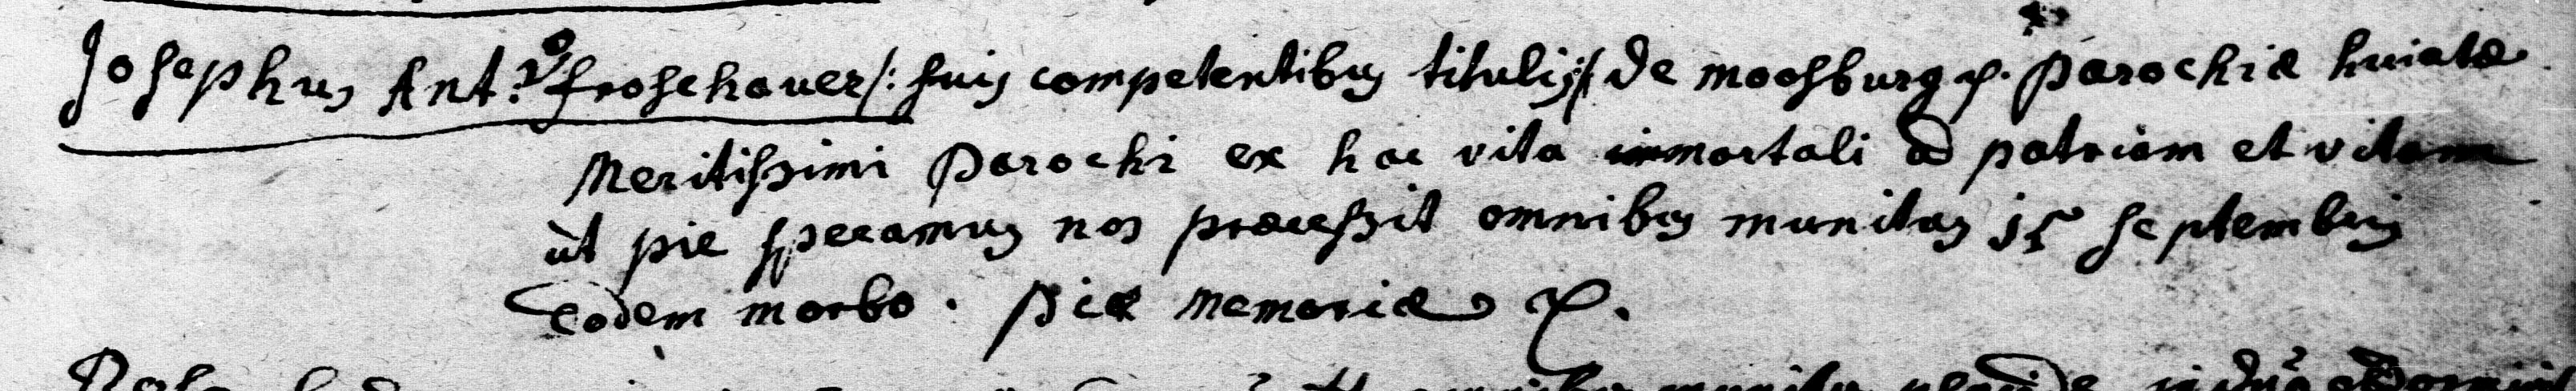 Josephus Ant:º froschauer /: suis competentibus titulis :/ de moosburg p. Parochiæ huiatæ
Meritissimi Parochi ex hac vita immortali ad patriam et vitam
ùt pie speramus nos præcessit omnibus munitus 15 septembris
eodem morbo. Piæ memoriæ